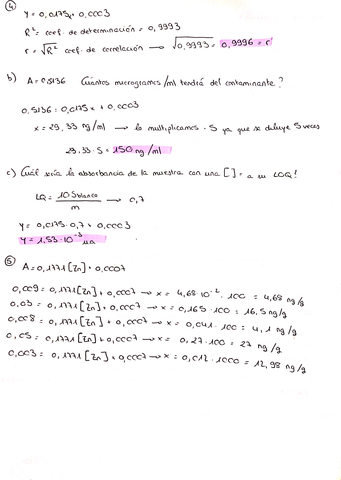 ④
Y = 0,0175x + 0,0003
R² = coef. de determinación = 0,9993
r = √R² coef. de correlación → √0,9993 = 0,9996 = r
b) A = 0,5136 Cuántos microgramos/ml tendrá del contaminante?
0,5136 = 0,0175x + 0,0003
x = 29,33 ng/ml → lo multiplicamos · 5 ya que se diluye 5 veces
29.33 · 5 = 150 ng/ml
c) Cuál sería la absorbancia de la muestra con una [ ] = a su LOQ?
LQ = 10 Sblanco / m → 0,7
Y = 0,0175 · 0,7 + 0,0003
Y = 1,53 · 10⁻³ ua
⑤
A = 0,1771 [Zn] + 0,0007
0,009 = 0,1771 [Zn] + 0,0007 → x = 4,68 · 10⁻² · 100 = 4,68 ng/g
0,03 = 0,1771 [Zn] + 0,0007 → x = 0,165 · 100 = 16,5 ng/g
0,008 = 0,1771 [Zn] + 0,0007 → x = 0,041 · 100 = 4,1 ng/g
0,05 = 0,1771 [Zn] + 0,0007 → x = 0,27 · 100 = 27 ng/g
0,003 = 0,1771 [Zn] + 0,0007 → x = 0,012 · 1000 = 12,98 ng/g